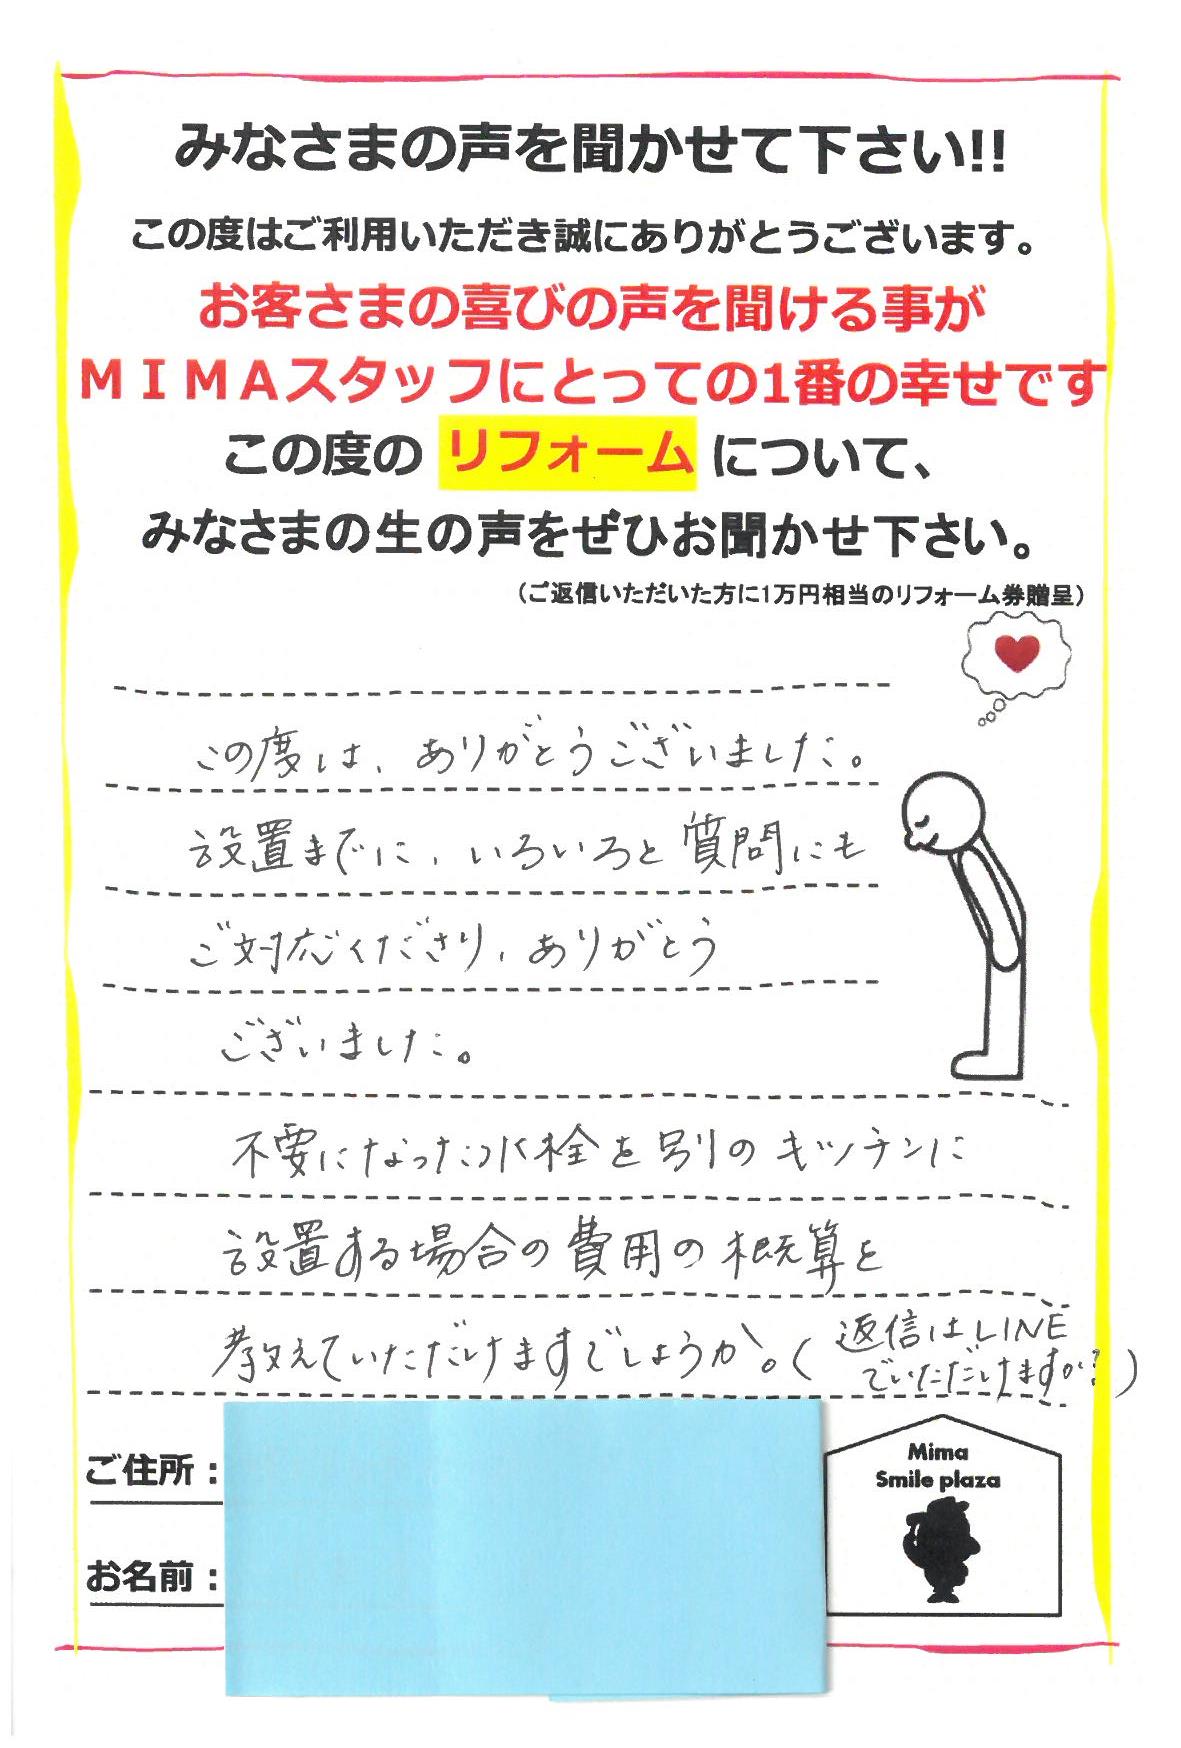 みなさまの声を聞かせて下さい!!
この度はご利用いただき誠にありがとうございます。
お客さまの喜びの声を聞ける事が
ＭＩＭＡスタッフにとっての1番の幸せです
この度の リフォーム について、
みなさまの生の声をぜひお聞かせ下さい。
（ご返信いただいた方に1万円相当のリフォーム券贈呈）
この度は、ありがとうございました。
設置までに、いろいろと質問にも
ご対応くださり、ありがとう
ございました。
不要になった水栓を別のキッチンに
設置する場合の費用の概算を
教えていただけますでしょうか。（返信はLINE
でいただけますか？）
ご住所：
お名前：
Mima
Smile plaza